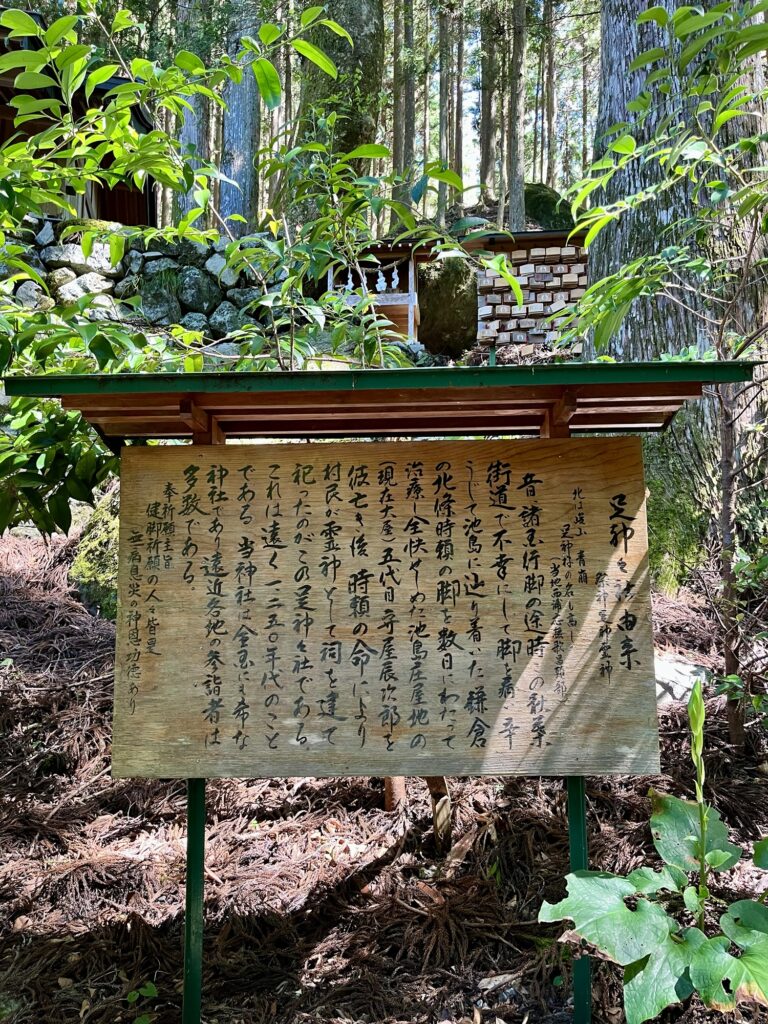 足神々社由来
祭神 霊神霊神
北は遠山 青崩
足神様の名も高し
(当地西浦
昔諸国行脚の途時この秋葉
街道で不幸にして脚を痛い辛
うじて池島に辿り着いた鎌倉
の北條時頼の脚を数日にわたって
治療し全快せしめた池島庄屋地の
(現在大屋)五代目守屋辰次郎を
彼亡き後 時頼の命により
村民が霊神として祠を建て
祀ったのがこの足神々社である。
これは遠く一二五〇年代のこと
である 当神社は全国にも希な
神社であり遠近各地の参詣者は
多数である。
奉祈願主旨
健脚祈願の人々皆是
無病息災の神恩功徳あり